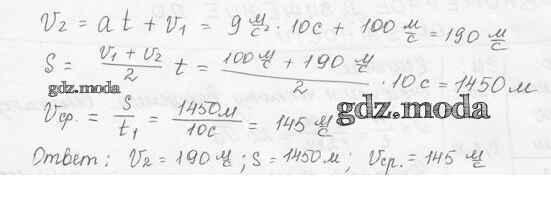 V₂ = at + V₁ = 9 м/с² · 10с + 100 м/с = 190 м/с
S = (V₁ + V₂)/2 t = (100 м/с + 190 м/с)/2 · 10с = 1450 м
gdz.moda
Vср. = S/t₁ = 1450м/10с = 145 м/с
gdz.moda
Ответ: V₂ = 190 м/с; S = 1450м; Vср. = 145 м/с